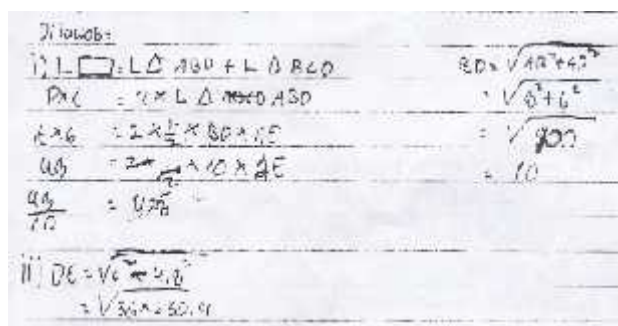 Dijawab:
i) L▭ = L Δ ABD + L Δ BCD
P×L = 2 × L Δ ABD
8×6 = 2 × 1/2 × BD × AE
48 = 2 × 1/2 × 10 × AE
48/10 =
ii) DE = √6² - 4,8²
= √36
BD = √AB²+AD²
= √8²+6²
= √100
= 10